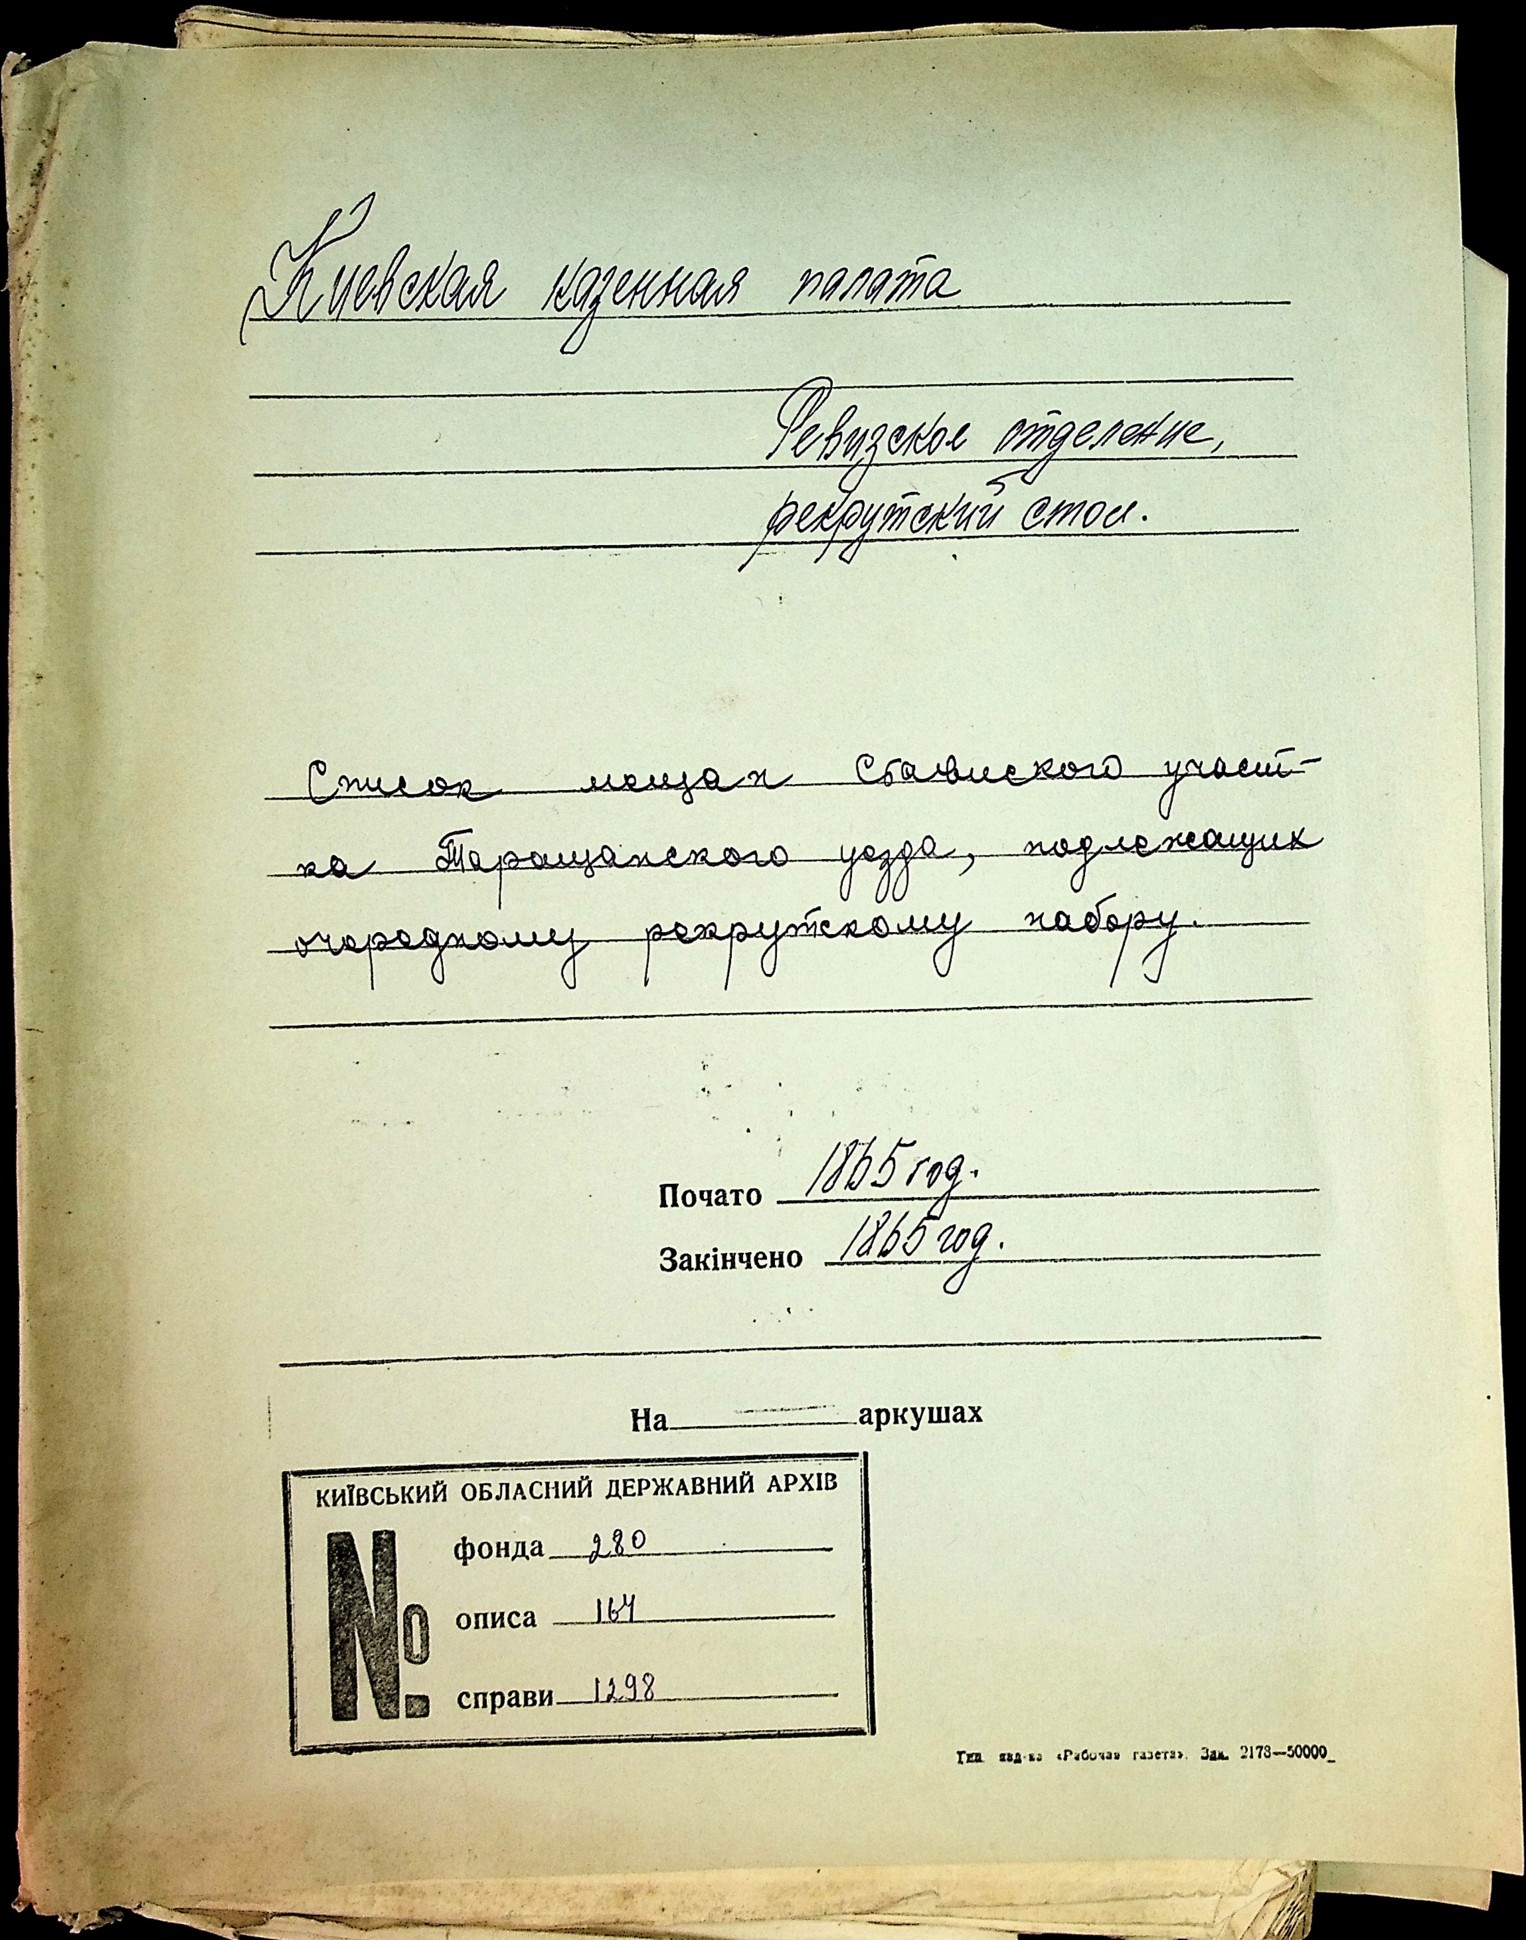 Киевская казенная палата
Ревизское отделение,
рекрутский стол.
Список мещан Ставиского участ-
ка Таращанского уезда, подлежащих
очередному рекрутскому набору.
Почато 1865 год.
Закінчено 1865 год.
На аркушах
КИЇВСЬКИЙ ОБЛАСНИЙ ДЕРЖАВНИЙ АРХІВ
№
фонда 280
описа 164
справи 1298
Тип. изд-ва «Рабочая газета». Зак. 2173—50000